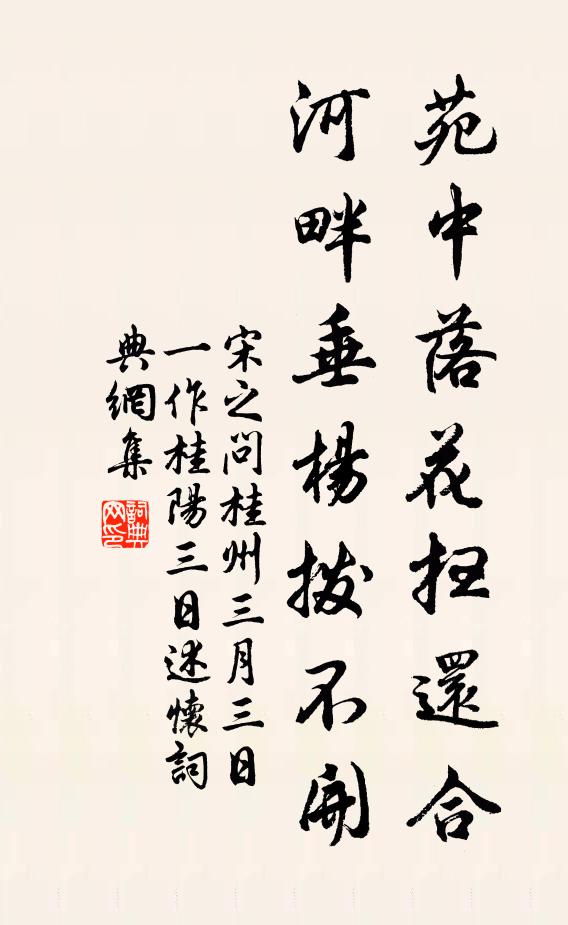 苑中落花扫還合
河畔垂楊撥不開
宋之问桂州三月三日
一作桂陽三日述懷詞
典網集
詞典网印